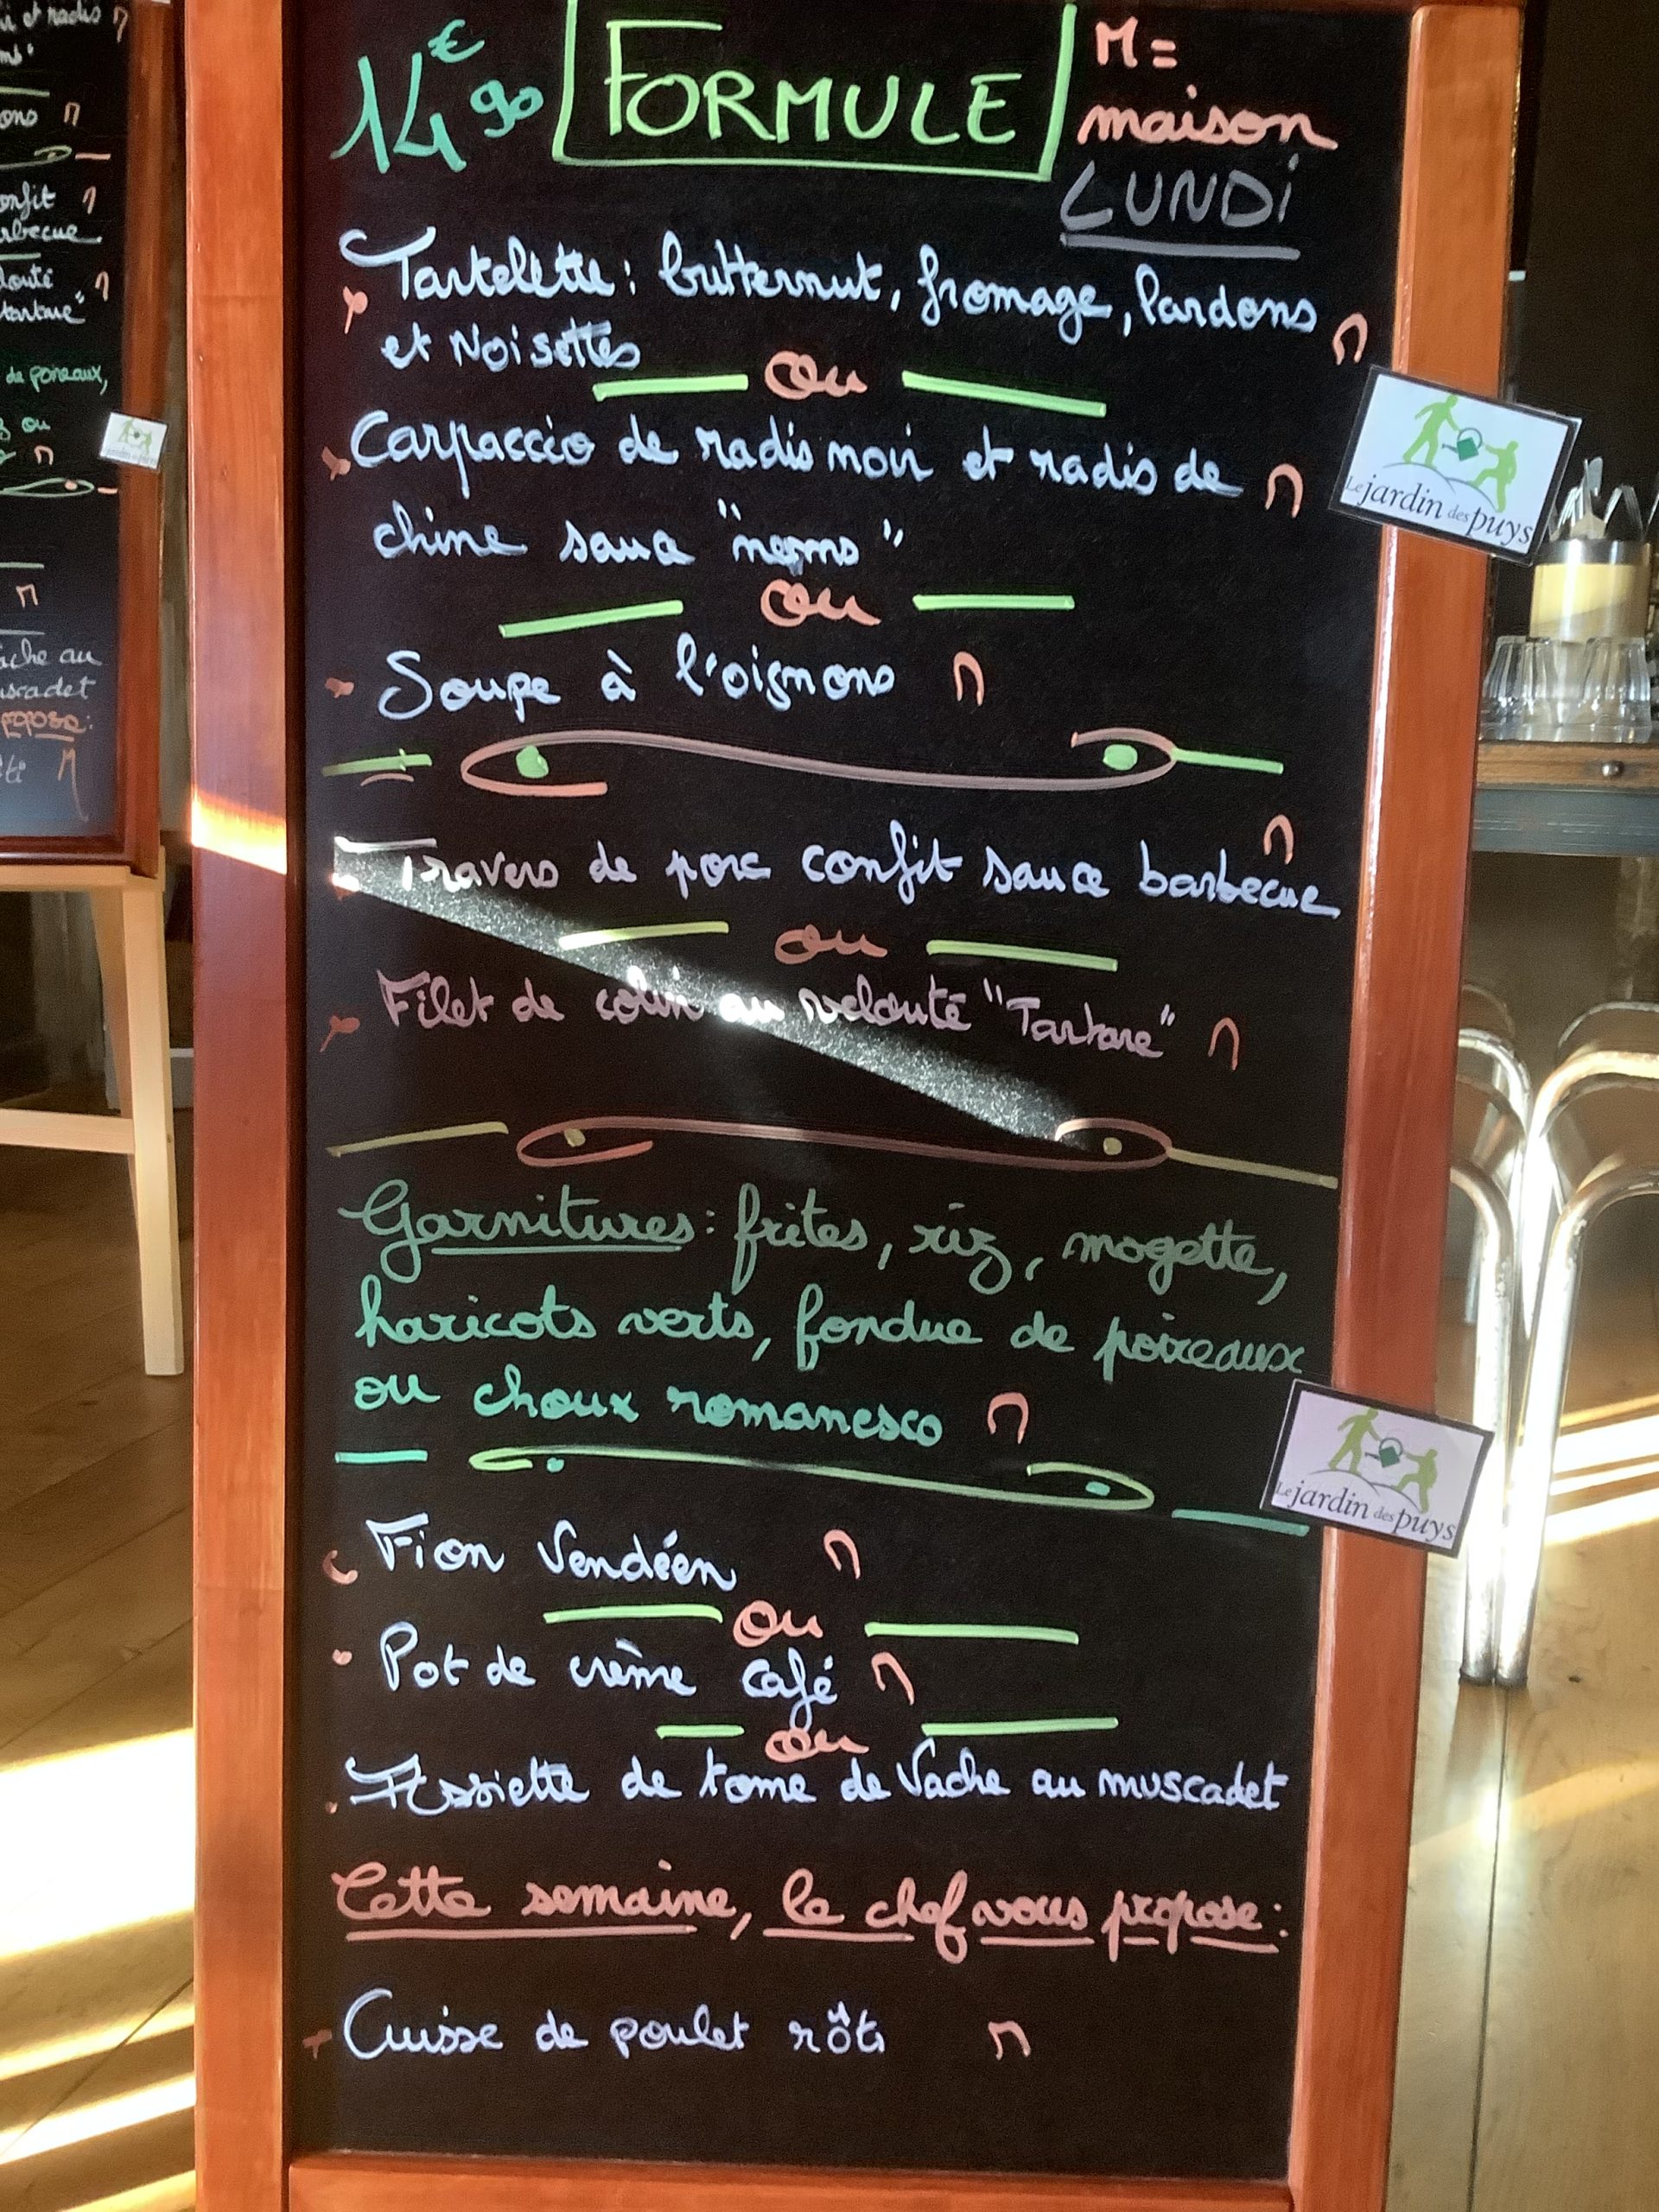 14€90
FORMULE
M =
maison
LUNDI
Tartelette : butternut, fromage, lardons M
et Noisettes
ou
Carpaccio de radis noir et radis de M
chine sauce "nems"
ou
Soupe à l'oignons M
M
Travers de porc confit sauce barbecue
ou
Filet de colin au velouté "Tartare" M
Garnitures : frites, riz, mogette,
haricots verts, fondue de poireaux
ou choux romanesco M
Fion Vendéen M
ou
Pot de crème café M
ou
Assiette de tome de Vache au muscadet
Cette semaine, le chef vous propose :
Cuisse de poulet rôti M
Le jardin des puys
Le jardin des puys
et radis M
M
onfit M
rbecue
louté M
tartare"
de poireaux,
ou
M
M
ache au
uscadet
ropose :
ti M